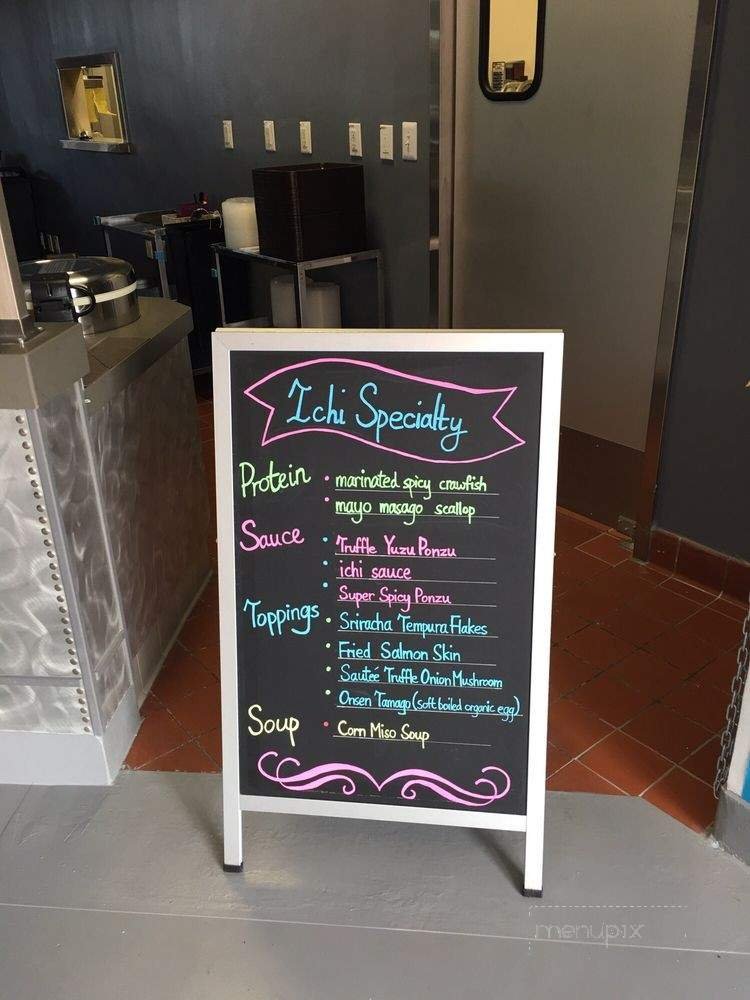 Ichi Specialty
Protein • marinated spicy crawfish
• mayo masago scallop
Sauce • Truffle Yuzu Ponzu
• ichi sauce
• Super Spicy Ponzu
Toppings • Sriracha Tempura Flakes
• Fried Salmon Skin
• Sauteé Truffle Onion Mushroom
• Onsen Tamago (soft boiled organic egg)
Soup • Corn Miso Soup
menupix